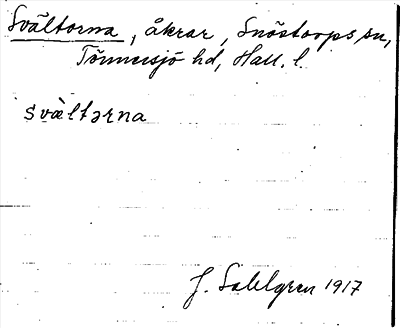 Svältorna, åkrar, Snöstorps sn,
Tönnersjö hd, Hall. l.
svὰltərna
J. Sahlgren 1917